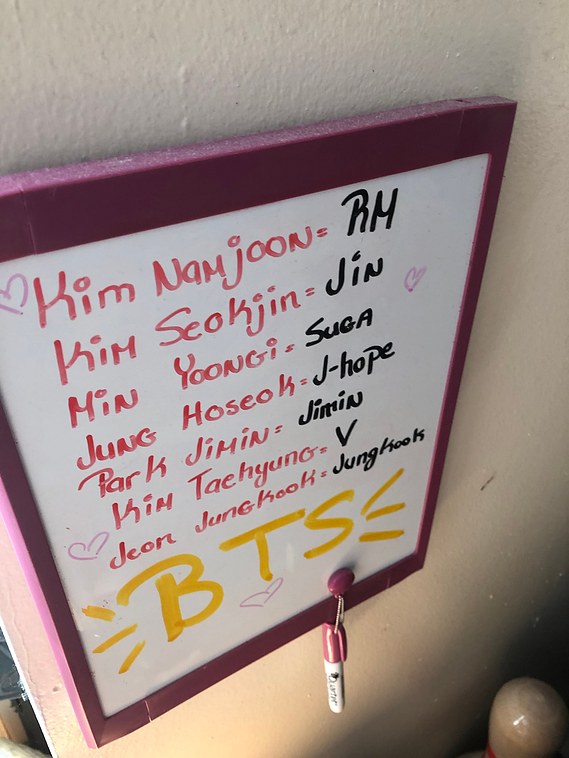 Kim Namjoon = RM
Kim Seokjin = Jin
Min Yoongi = Suga
Jung Hoseok = J-hope
Park Jimin = Jimin
Kim Taehyung = V
Jeon Jungkook = Jungkook
BTS